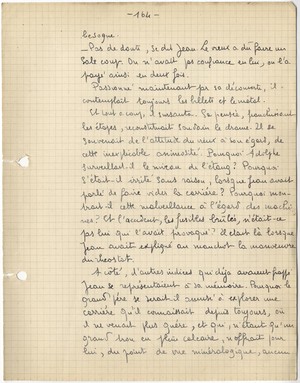 - 164 -
besogne.
_ Pas de doute, se dit Jean. Le vieux a dû faire un
sale coup. On n'avait pas confiance en lui, on l'a
payé ainsi en deux fois.
Passionné maintenant par sa découverte, il
contemplait toujours les billets et le métal.
Et tout à coup, il sursauta. Sa pensée, franchissant
les étapes, reconstituait soudain le drame. Il se
souvenait de l'attitude du vieux à son égard, de
cette inexplicable animosité. Pourquoi Adolphe
surveillait-il le niveau de l'étang ? Pourquoi
s'était-il irrité sans raison, lorsque Jean avait
parlé de faire vider la carrière ? Pourquoi mon-
trait-il cette malveillance à l'égard des machi-
nes ? Et l'accident, les fusibles brûlés, n'était-ce
pas lui qui l'avait provoqué ? Il était là lorsque
Jean avait expliqué au manchot la manoeuvre
du rhéostat.
A côté, d'autres indices qui déjà avaient frappé
Jean se représentaient à sa mémoire. Pourquoi le
grand-père se serait-il amusé à explorer une
carrière qu'il connaissait depuis toujours, où
il ne venait plus guère, et qui, n'étant qu'un
grand trou en plein calcaire, n'offrait pour
lui, du point de vue minéralogique, aucun